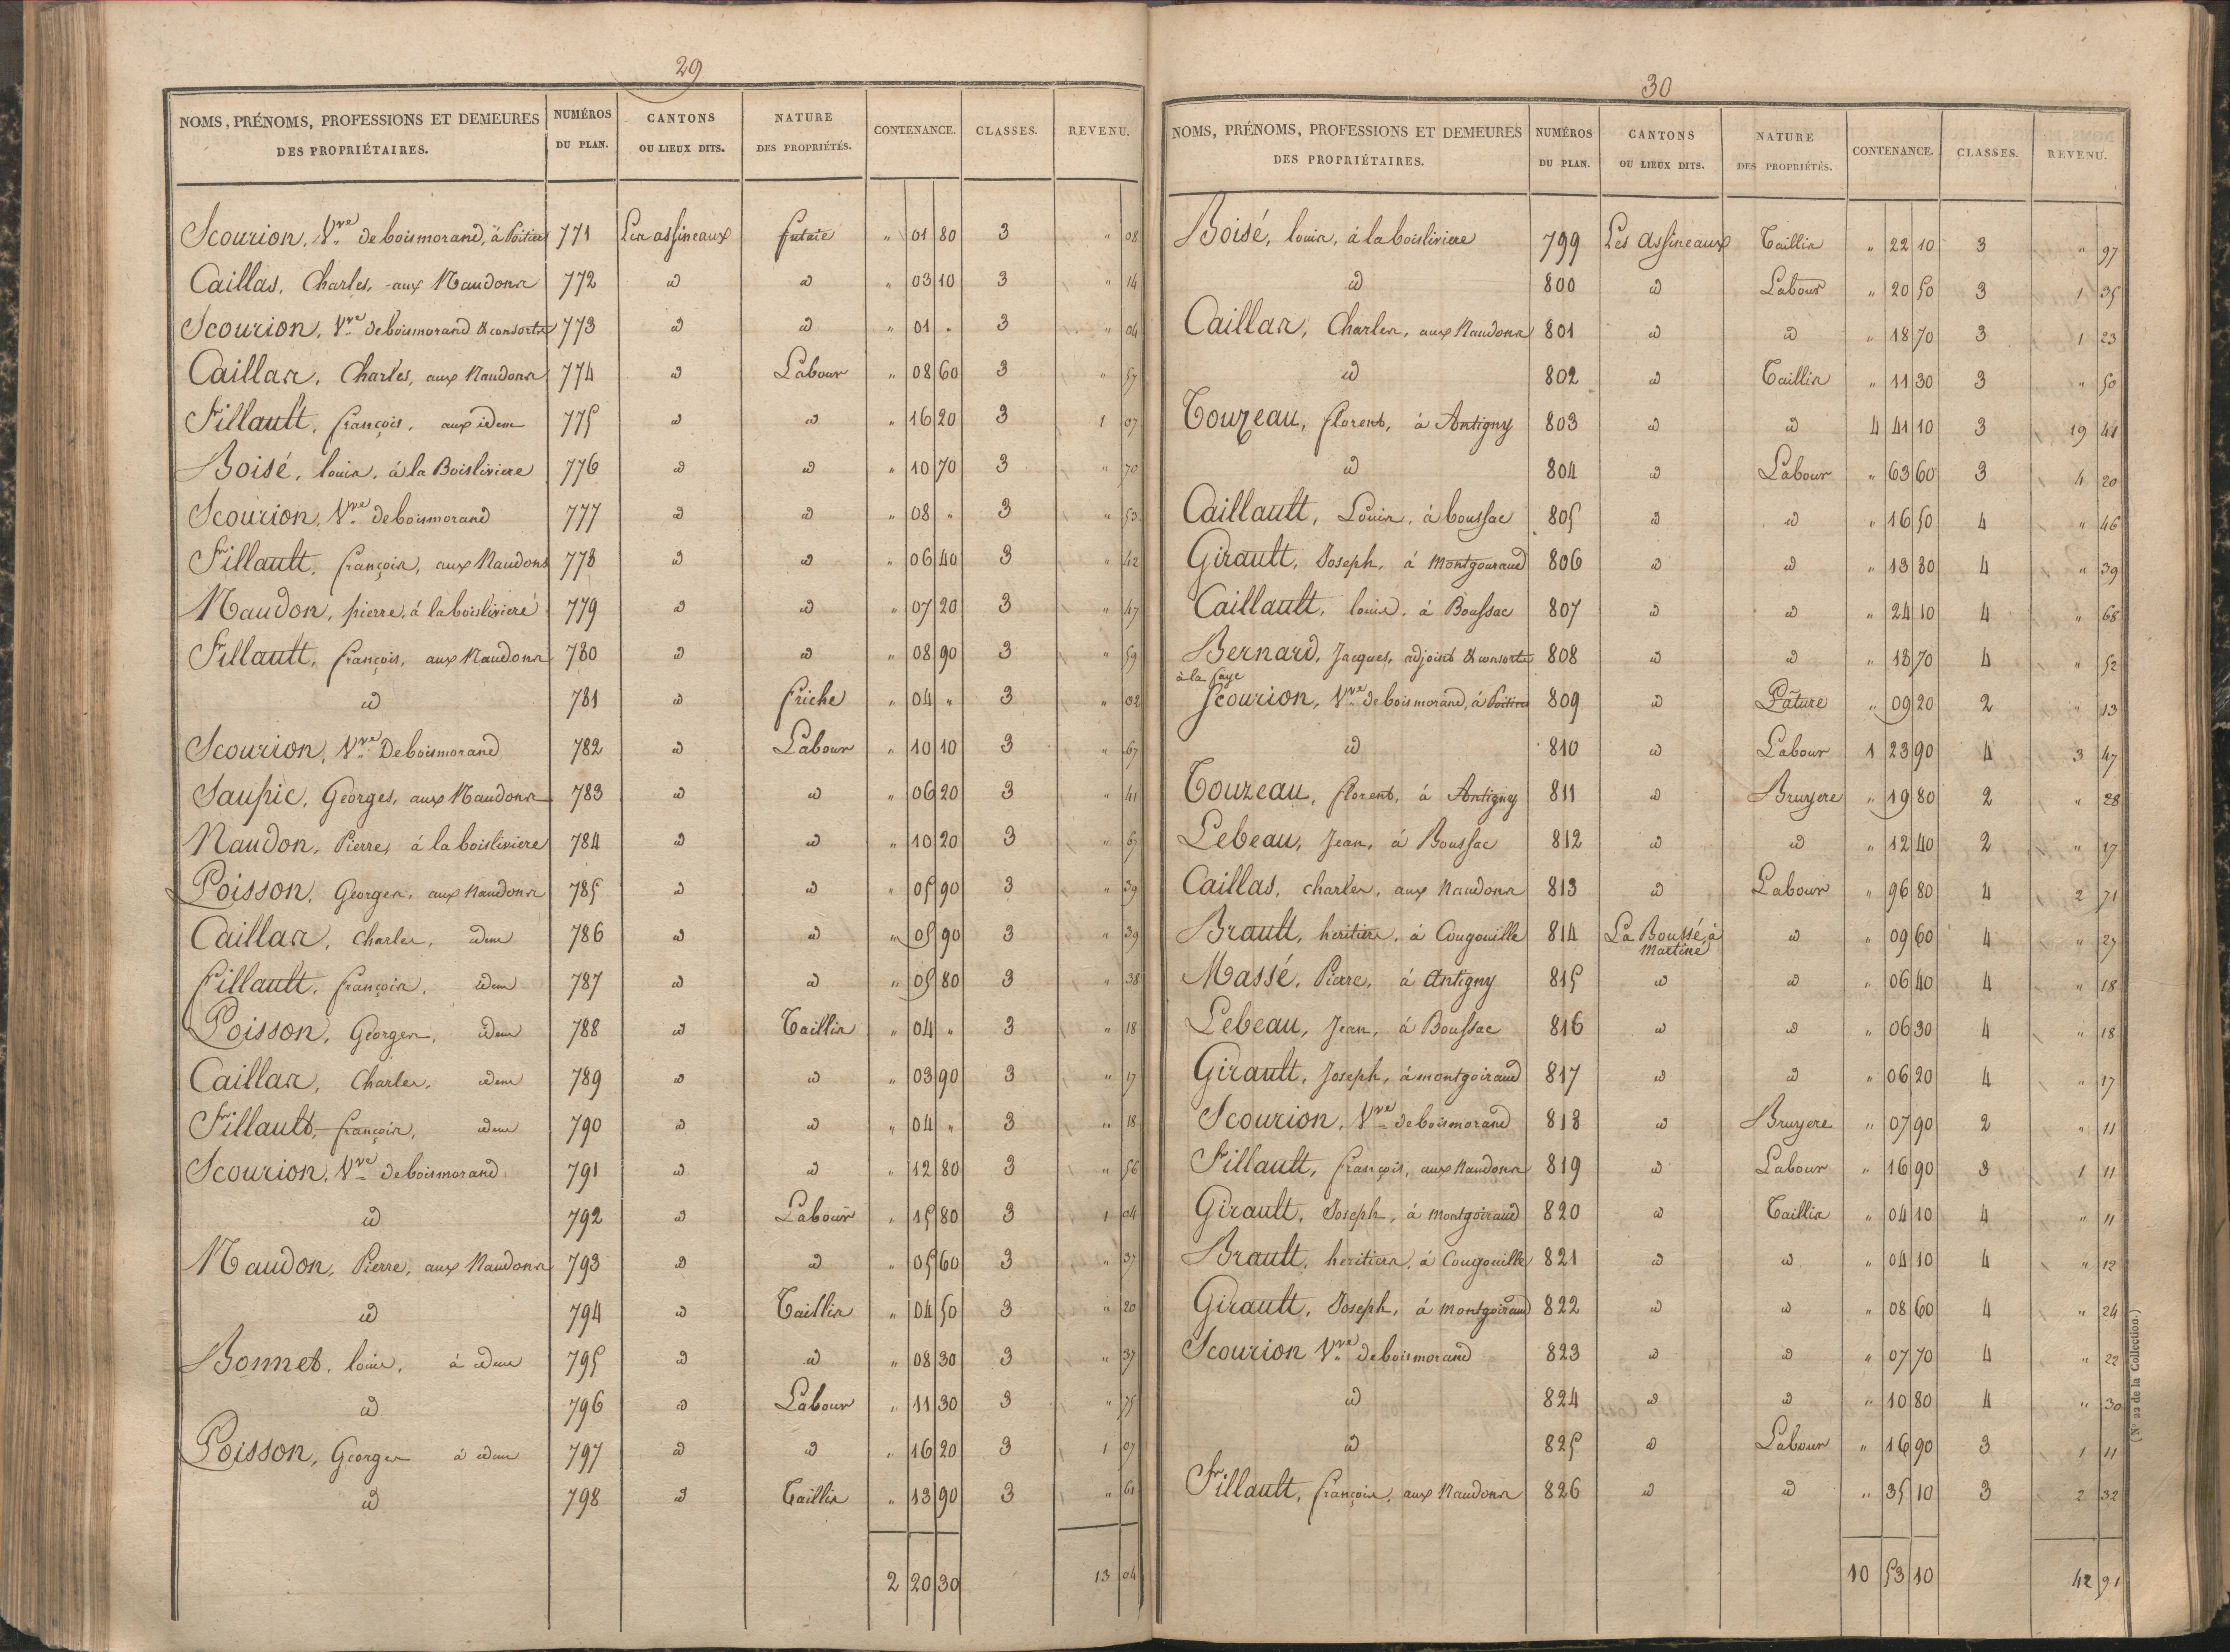 29
NOMS, PRÉNOMS, PROFESSIONS ET DEMEURES DES PROPRIÉTAIRES. NUMÉROS DU PLAN. CANTONS OU LIEUX DITS. NATURE DES PROPRIÉTÉS. CONTENANCE. CLASSES. REVENU.
Scourion, Vve de boismorand, à Poitiers 771 Les assineaux futaie " 01 80 3 " 08
Caillas, Charles, aux Naudons 772 id id " 03 10 3 " 14
Scourion, Vve deboismorand & consorts 773 id id " 01 " 3 " 04
Caillas, Charles, aux Naudons 774 id Labour " 08 60 3 " 57
Fillault, françois, aux idem 775 id id " 16 20 3 1 07
Boisé, louis, à la Boislivière 776 id id " 10 70 3 " 70
Scourion, Vve deboismorand 777 id id " 08 " 3 " 53
Fillault, françois, aux Naudons 778 id id " 06 40 3 " 42
Naudon, pierre, à la boisliviere 779 id id " 07 20 3 " 47
Fillault, françois, aux Naudons 780 id id " 08 90 3 " 59
id 781 id friche " 04 " 3 " 02
Scourion, Vve Deboismorand 782 id Labour " 10 10 3 " 67
Saupic, Georges, aux Naudons 783 id id " 06 20 3 " 41
Naudon, Pierre, à la boisliviere 784 id id " 10 20 3 " 67
Poisson, Georges, aux Naudons 785 id id " 05 90 3 " 39
Caillas, Charles, idem 786 id id " 05 90 3 " 39
Fillault, françois, idem 787 id id " 05 80 3 " 38
Poisson, Georges, idem 788 id Taillis " 04 " 3 " 18
Caillas, Charles, idem 789 id id " 03 90 3 " 17
Fillault, françois, idem 790 id id " 04 " 3 " 18
Scourion, Vve deboismorand 791 id id " 12 80 3 " 56
id 792 id Labour " 15 80 3 1 04
Naudon, Pierre, aux Naudons 793 id id " 05 60 3 " 37
id 794 id Taillis " 04 50 3 " 20
Bonnet, louis, à idem 795 id id " 08 30 3 " 37
id 796 id Labour " 11 30 3 " 75
Poisson, Georges à idem 797 id id " 16 20 3 1 07
id 798 id Taillis " 13 90 3 " 61
2 20 30 13 04
30
NOMS, PRÉNOMS, PROFESSIONS ET DEMEURES DES PROPRIÉTAIRES. NUMÉROS DU PLAN. CANTONS OU LIEUX DITS. NATURE DES PROPRIÉTÉS. CONTENANCE. CLASSES. REVENU.
Boisé, louis, à la boisliviere 799 Les assineaux Taillis " 22 10 3 " 97
id 800 id Labour " 20 50 3 1 35
Caillas, Charles, aux Naudons 801 id id " 18 70 3 1 23
id 802 id Taillis " 11 30 3 " 50
Touzeau, florent, à Antigny 803 id id 4 41 10 3 19 41
id 804 id Labour " 63 60 3 4 20
Caillault, Louis, à boussac 805 id id " 16 50 4 " 46
Girault, Joseph, à Montgouraud 806 id id " 13 80 4 " 39
Caillault, louis, à Boussac 807 id id " 24 10 4 " 68
Bernard, Jacques, adjoint & consorts 808 id id " 18 70 4 " 52
à la faye
Scourion, Vve deboismorand, à Poitiers 809 id Pâture " 09 20 2 " 13
id 810 id Labour 1 23 90 4 3 47
Touzeau, florent, à Antigny 811 id Bruyere " 19 80 2 " 28
Lebeau, Jean, à Boussac 812 id id " 12 40 2 " 17
Caillas, charles, aux Naudons 813 id Labour " 96 80 4 2 71
Brault, heritiers, à Cougouille 814 La Boussé, à Martine id " 09 60 4 " 27
Massé, Pierre, à Antigny 815 id id " 06 40 4 " 18
Lebeau, Jean, à Boussac 816 id id " 06 30 4 " 18
Girault, Joseph, à montgoiraud 817 id id " 06 20 4 " 17
Scourion, Vve deboismorand 818 id Bruyere " 07 90 2 " 11
Fillault, françois, aux Naudons 819 id Labour " 16 90 3 1 11
Girault, Joseph, à Montgoiraud 820 id Taillis " 04 10 4 " 11
Brault, heritiers, à Cougouille 821 id id " 04 10 4 " 12
Girault, Joseph, à Montgoiraud 822 id id " 08 60 4 " 24
Scourion Vve deboismorand 823 id id " 07 70 4 " 22
id 824 id id " 10 80 4 " 30
id 825 id Labour " 16 90 3 1 11
Fillault, françois, aux Naudons 826 id id " 35 10 3 2 32
10 53 10 42 91
(N° 22 de la Collection.)